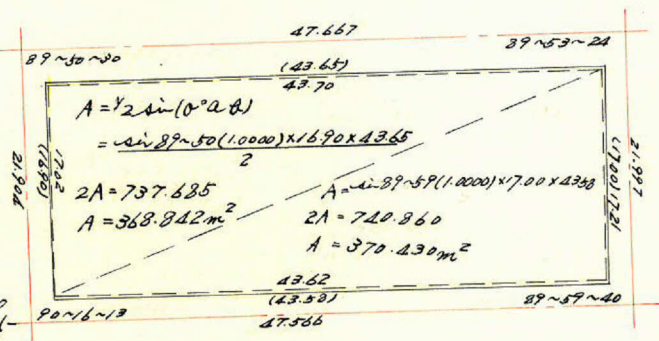 47.667
89~50~30
89~53~24
(43.65)
43.70
A = ½ sin(θ°ab)
= sin 89~50(1.0000)×16.90×43.65
2
2A = 737.685
A = 368.842m²
A = sin 89~59(1.0000)×17.00×4358
2A = 740.860
A = 370.430m²
21.904
(16.90)
17.02
(17.00)
17.21
21.997
43.62
(43.58)
90~16~13
89~59~40
47.566